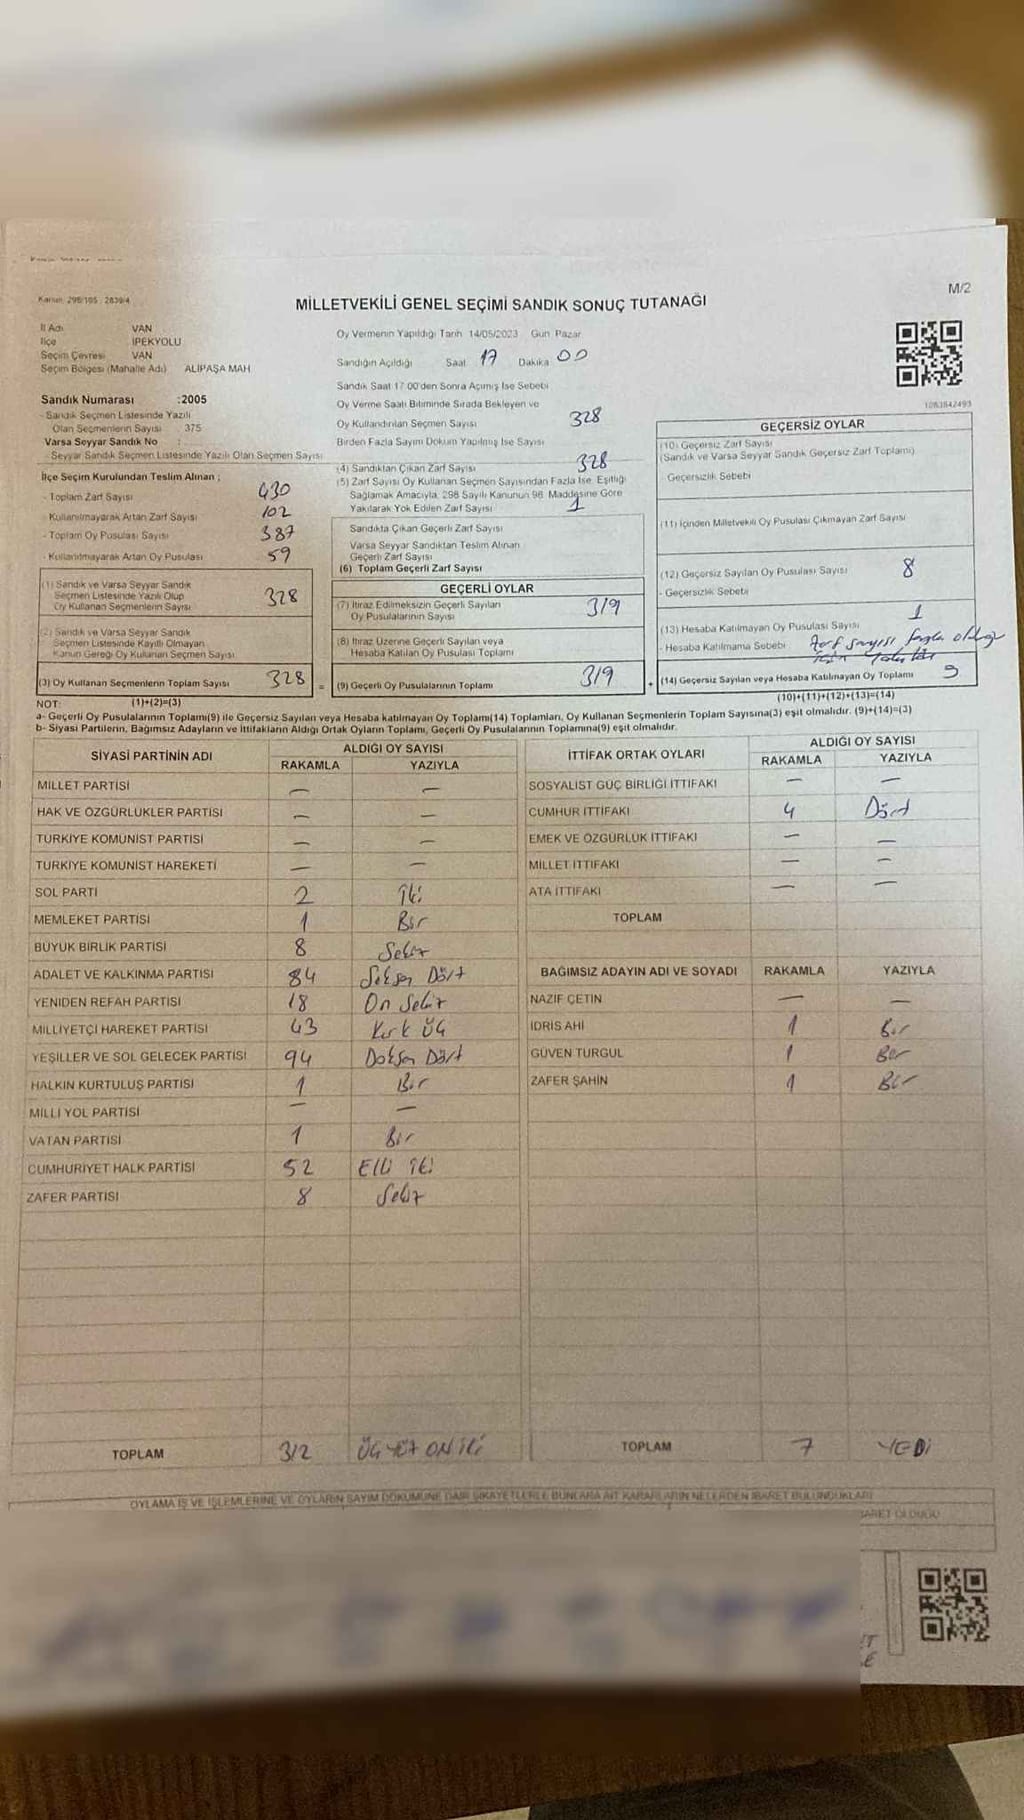 Kanun: 298/105 , 2839/4
MİLLETVEKİLİ GENEL SEÇİMİ SANDIK SONUÇ TUTANAĞI
M/2
İl Adı VAN
İlçe İPEKYOLU
Seçim Çevresi VAN
Seçim Bölgesi (Mahalle Adı) ALİPAŞA MAH
Oy Vermenin Yapıldığı Tarih 14/05/2023 Gün Pazar
Sandığın Açıldığı Saat 17 Dakika 00
Sandık Saat 17 00'den Sonra Açımış İse Sebebi
Oy Verme Saati Bitiminde Sırada Bekleyen ve
Oy Kullandırılan Seçmen Sayısı 328
Birden Fazla Sayım Döküm Yapılmış İse Sayısı
1083842493
Sandık Numarası :2005
- Sandık Seçmen Listesinde Yazılı
Olan Seçmenlerin Sayısı 375
Varsa Seyyar Sandık No :
- Seyyar Sandık Seçmen Listesinde Yazılı Olan Seçmen Sayısı
İlçe Seçim Kurulundan Teslim Alınan ;
- Toplam Zarf Sayısı 430
- Kullanılmayarak Artan Zarf Sayısı 102
- Toplam Oy Pusulası Sayısı 387
- Kullanılmayarak Artan Oy Pusulası 59
(1) Sandık ve Varsa Seyyar Sandık
Seçmen Listesinde Yazılı Olup
Oy Kullanan Seçmenlerin Sayısı 328
(2) Sandık ve Varsa Seyyar Sandık
Seçmen Listesinde Kayıtlı Olmayan
Kanun Gereği Oy Kullanan Seçmen Sayısı
(3) Oy Kullanan Seçmenlerin Toplam Sayısı 328
(1)+(2)=(3)
(4) Sandıktan Çıkan Zarf Sayısı 328
(5) Zarf Sayısı Oy Kullanan Seçmen Sayısından Fazla İse, Eşitliği
Sağlamak Amacıyla, 298 Sayılı Kanunun 98. Maddesine Göre
Yakılarak Yok Edilen Zarf Sayısı 1
Sandıkta Çıkan Geçerli Zarf Sayısı
Varsa Seyyar Sandıktan Teslim Alınan
Geçerli Zarf Sayısı
(6) Toplam Geçerli Zarf Sayısı
GEÇERLİ OYLAR
(7) İtiraz Edilmeksizin Geçerli Sayılan
Oy Pusulalarının Sayısı 319
(8) İtiraz Üzerine Geçerli Sayılan veya
Hesaba Katılan Oy Pusulası Toplamı
= (9) Geçerli Oy Pusulalarının Toplamı 319
GEÇERSİZ OYLAR
(10) Geçersiz Zarf Sayısı
(Sandık ve Varsa Seyyar Sandık Geçersiz Zarf Toplamı)
- Geçersizlik Sebebi
(11) İçinden Milletvekili Oy Pusulası Çıkmayan Zarf Sayısı
(12) Geçersiz Sayılan Oy Pusulası Sayısı 8
- Geçersizlik Sebebi
(13) Hesaba Katılmayan Oy Pusulası Sayısı 1
- Hesaba Katılmama Sebebi Zarf sayısı fazla olduğu
için
+ (14) Geçersiz Sayılan veya Hesaba Katılmayan Oy Toplamı 9
(10)+(11)+(12)+(13)=(14)
NOT:
a- Geçerli Oy Pusulalarının Toplamı(9) ile Geçersiz Sayılan veya Hesaba katılmayan Oy Toplamı(14) Toplamları, Oy Kullanan Seçmenlerin Toplam Sayısına(3) eşit olmalıdır. (9)+(14)=(3)
b- Siyasi Partilerin, Bağımsız Adayların ve İttifakların Aldığı Ortak Oyların Toplamı, Geçerli Oy Pusulalarının Toplamına(9) eşit olmalıdır.
SİYASİ PARTİNİN ADI ALDIĞI OY SAYISI
RAKAMLA YAZIYLA
MİLLET PARTİSİ — —
HAK VE ÖZGÜRLÜKLER PARTİSİ — —
TÜRKİYE KOMÜNİST PARTİSİ — —
TÜRKİYE KOMÜNİST HAREKETİ — —
SOL PARTİ 2 İki
MEMLEKET PARTİSİ 1 Bir
BÜYÜK BİRLİK PARTİSİ 8 Sekiz
ADALET VE KALKINMA PARTİSİ 84 Seksen Dört
YENİDEN REFAH PARTİSİ 18 On Sekiz
MİLLİYETÇİ HAREKET PARTİSİ 43 Kırk Üç
YEŞİLLER VE SOL GELECEK PARTİSİ 94 Doksan Dört
HALKIN KURTULUŞ PARTİSİ 1 Bir
MİLLİ YOL PARTİSİ — —
VATAN PARTİSİ 1 Bir
CUMHURİYET HALK PARTİSİ 52 Elli İki
ZAFER PARTİSİ 8 Sekiz
TOPLAM 312 ÜÇ YÜZ ON İKİ
İTTİFAK ORTAK OYLARI ALDIĞI OY SAYISI
RAKAMLA YAZIYLA
SOSYALİST GÜÇ BİRLİĞİ İTTİFAKI — —
CUMHUR İTTİFAKI 4 Dört
EMEK VE ÖZGÜRLÜK İTTİFAKI — —
MİLLET İTTİFAKI — —
ATA İTTİFAKI — —
TOPLAM
BAĞIMSIZ ADAYIN ADI VE SOYADI RAKAMLA YAZIYLA
NAZİF ÇETİN — —
İDRİS AHİ 1 Bir
GÜVEN TURGUL 1 Bir
ZAFER ŞAHİN 1 Bir
TOPLAM 7 YEDİ
OYLAMA İŞ VE İŞLEMLERİNE VE OYLARIN SAYIM DÖKÜMÜNE DAİR ŞİKAYETLERLE BUNLARA AİT KARARLARIN NELERDEN İBARET BULUNDUKLARI